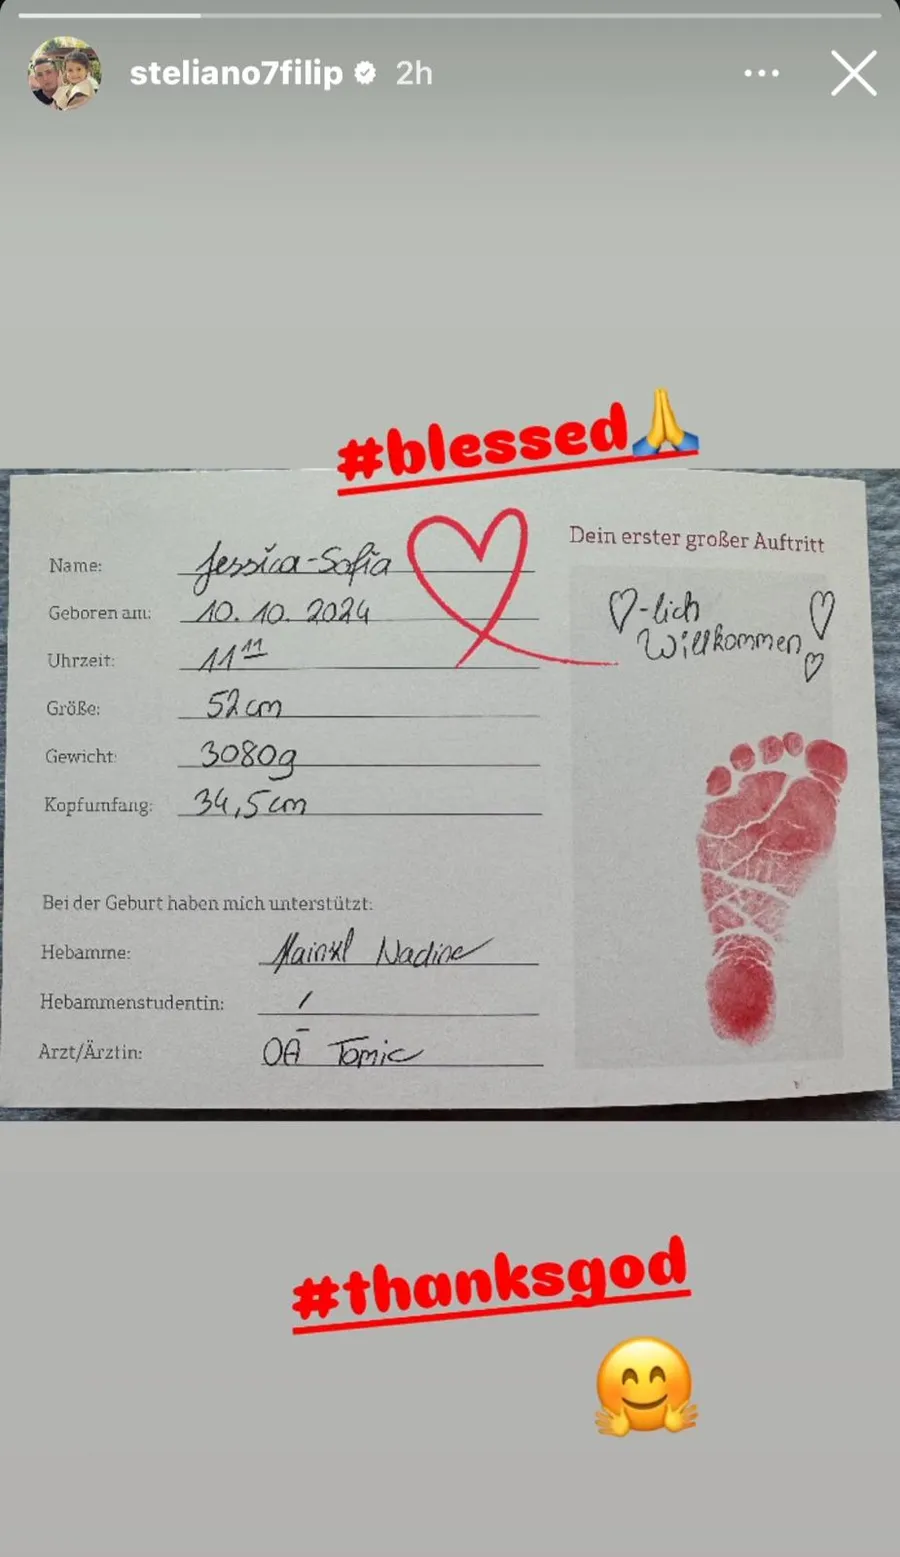 steliano7filip 2h
#blessed🙏
Name: Jessica-Sofia
Geboren am: 10.10.2024
Uhrzeit: 11 11
Größe: 52cm
Gewicht: 3080g
Kopfumfang: 34,5cm
Bei der Geburt haben mich unterstützt:
Hebamme: Nadine
Hebammenstudentin: /
Arzt/Ärztin: OÄ Tomic
Dein erster großer Auftritt
♡-lich
Willkommen
#thanksgod
🤗